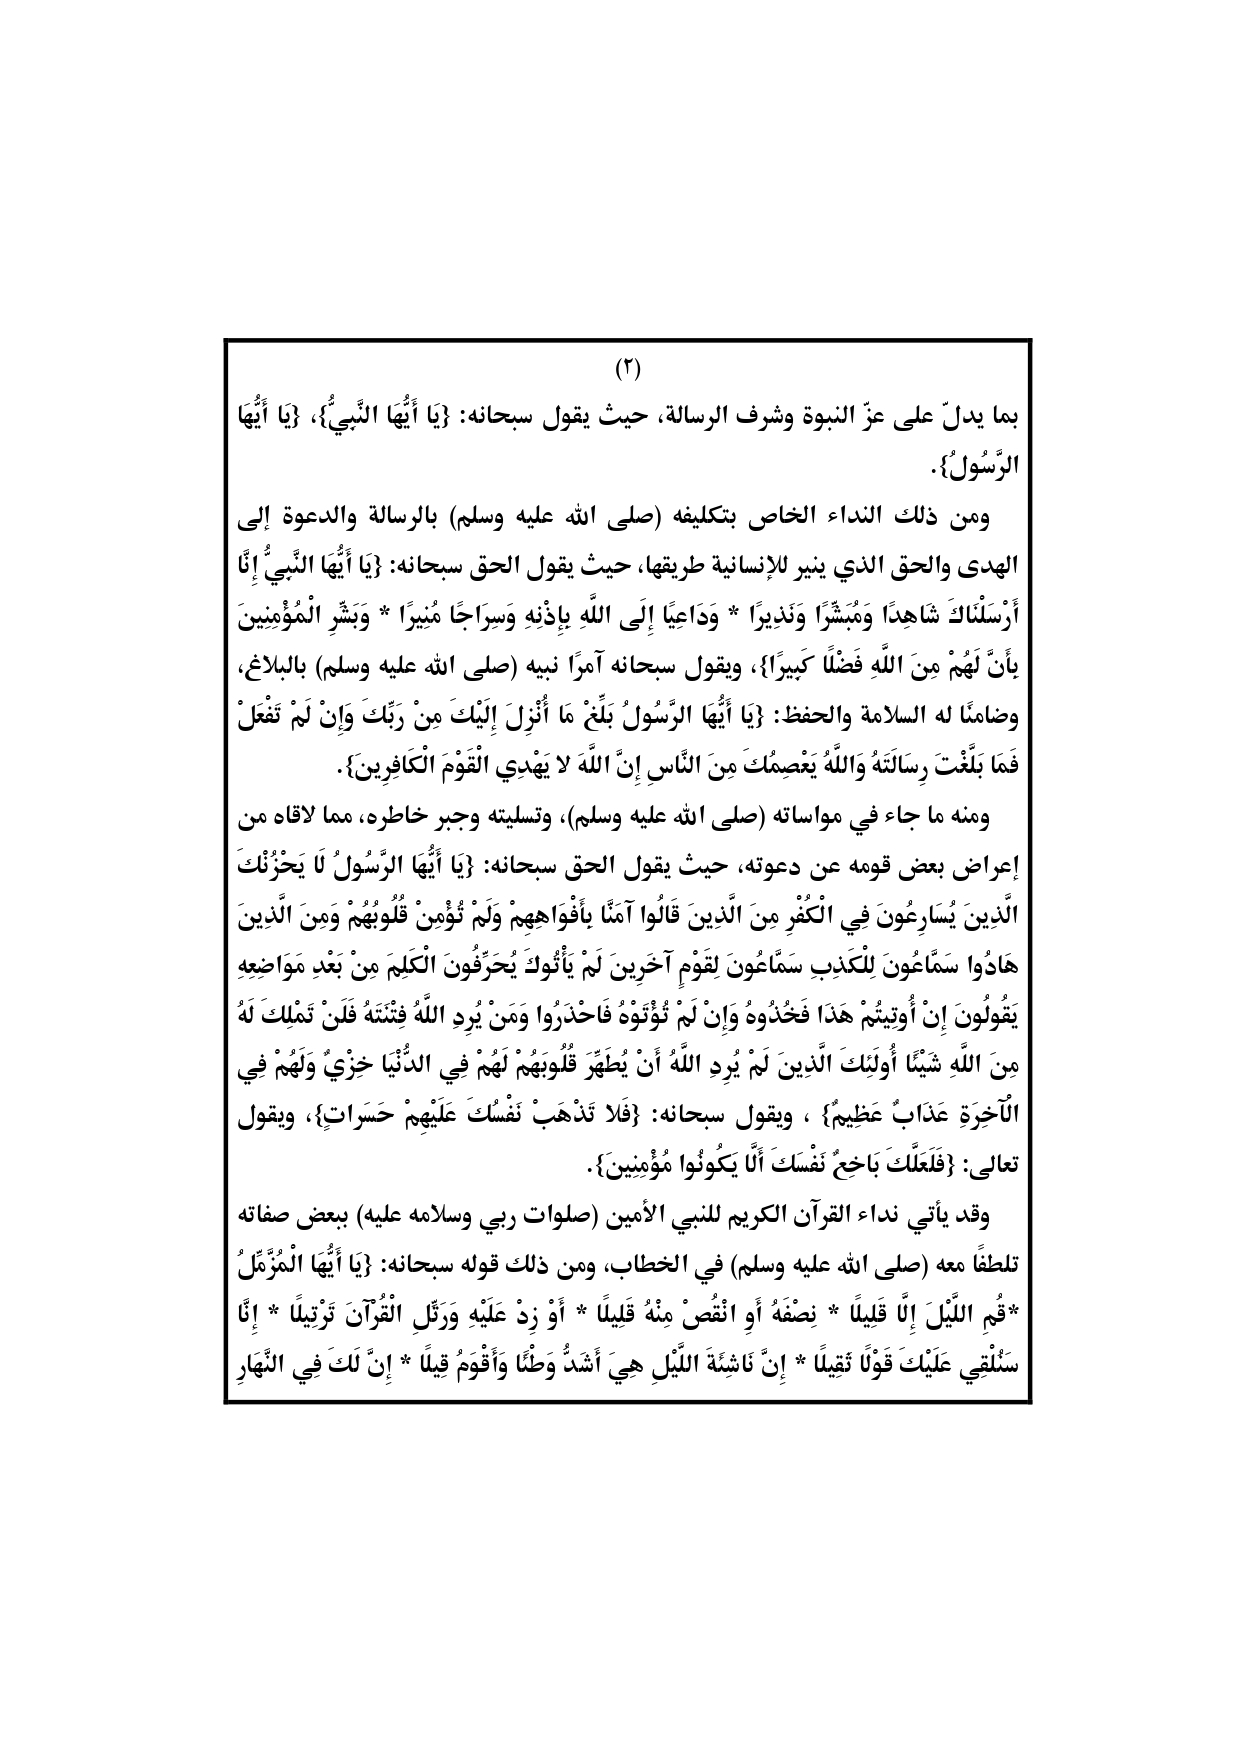 (٢)
بما يدلّ على عزّ النبوة وشرف الرسالة، حيث يقول سبحانه: {يَا أَيُّهَا النَّبِيُّ}، {يَا أَيُّهَا
الرَّسُولُ}.
ومن ذلك النداء الخاص بتكليفه (صلى الله عليه وسلم) بالرسالة والدعوة إلى
الهدى والحق الذي ينير للإنسانية طريقها، حيث يقول الحق سبحانه: {يَا أَيُّهَا النَّبِيُّ إِنَّا
أَرْسَلْنَاكَ شَاهِدًا وَمُبَشِّرًا وَنَذِيرًا * وَدَاعِيًا إِلَى اللَّهِ بِإِذْنِهِ وَسِرَاجًا مُنِيرًا * وَبَشِّرِ الْمُؤْمِنِينَ
بِأَنَّ لَهُمْ مِنَ اللَّهِ فَضْلًا كَبِيرًا}، ويقول سبحانه آمرًا نبيه (صلى الله عليه وسلم) بالبلاغ،
وضامنًا له السلامة والحفظ: {يَا أَيُّهَا الرَّسُولُ بَلِّغْ مَا أُنْزِلَ إِلَيْكَ مِنْ رَبِّكَ وَإِنْ لَمْ تَفْعَلْ
فَمَا بَلَّغْتَ رِسَالَتَهُ وَاللَّهُ يَعْصِمُكَ مِنَ النَّاسِ إِنَّ اللَّهَ لا يَهْدِي الْقَوْمَ الْكَافِرِينَ}.
ومنه ما جاء في مواساته (صلى الله عليه وسلم)، وتسليته وجبر خاطره، مما لاقاه من
إعراض بعض قومه عن دعوته، حيث يقول الحق سبحانه: {يَا أَيُّهَا الرَّسُولُ لَا يَحْزُنْكَ
الَّذِينَ يُسَارِعُونَ فِي الْكُفْرِ مِنَ الَّذِينَ قَالُوا آمَنَّا بِأَفْوَاهِهِمْ وَلَمْ تُؤْمِنْ قُلُوبُهُمْ وَمِنَ الَّذِينَ
هَادُوا سَمَّاعُونَ لِلْكَذِبِ سَمَّاعُونَ لِقَوْمٍ آخَرِينَ لَمْ يَأْتُوكَ يُحَرِّفُونَ الْكَلِمَ مِنْ بَعْدِ مَوَاضِعِهِ
يَقُولُونَ إِنْ أُوتِيتُمْ هَذَا فَخُذُوهُ وَإِنْ لَمْ تُؤْتَوْهُ فَاحْذَرُوا وَمَنْ يُرِدِ اللَّهُ فِتْنَتَهُ فَلَنْ تَمْلِكَ لَهُ
مِنَ اللَّهِ شَيْئًا أُولَئِكَ الَّذِينَ لَمْ يُرِدِ اللَّهُ أَنْ يُطَهِّرَ قُلُوبَهُمْ لَهُمْ فِي الدُّنْيَا خِزْيٌ وَلَهُمْ فِي
الْآخِرَةِ عَذَابٌ عَظِيمٌ} ، ويقول سبحانه: {فَلا تَذْهَبْ نَفْسُكَ عَلَيْهِمْ حَسَرَاتٍ}، ويقول
تعالى: {فَلَعَلَّكَ بَاخِعٌ نَفْسَكَ أَلَّا يَكُونُوا مُؤْمِنِينَ}.
وقد يأتي نداء القرآن الكريم للنبي الأمين (صلوات ربي وسلامه عليه) ببعض صفاته
تلطفًا معه (صلى الله عليه وسلم) في الخطاب، ومن ذلك قوله سبحانه: {يَا أَيُّهَا الْمُزَّمِّلُ
*قُمِ اللَّيْلَ إِلَّا قَلِيلًا * نِصْفَهُ أَوِ انْقُصْ مِنْهُ قَلِيلًا * أَوْ زِدْ عَلَيْهِ وَرَتِّلِ الْقُرْآنَ تَرْتِيلًا * إِنَّا
سَنُلْقِي عَلَيْكَ قَوْلًا ثَقِيلًا * إِنَّ نَاشِئَةَ اللَّيْلِ هِيَ أَشَدُّ وَطْئًا وَأَقْوَمُ قِيلًا * إِنَّ لَكَ فِي النَّهَارِ